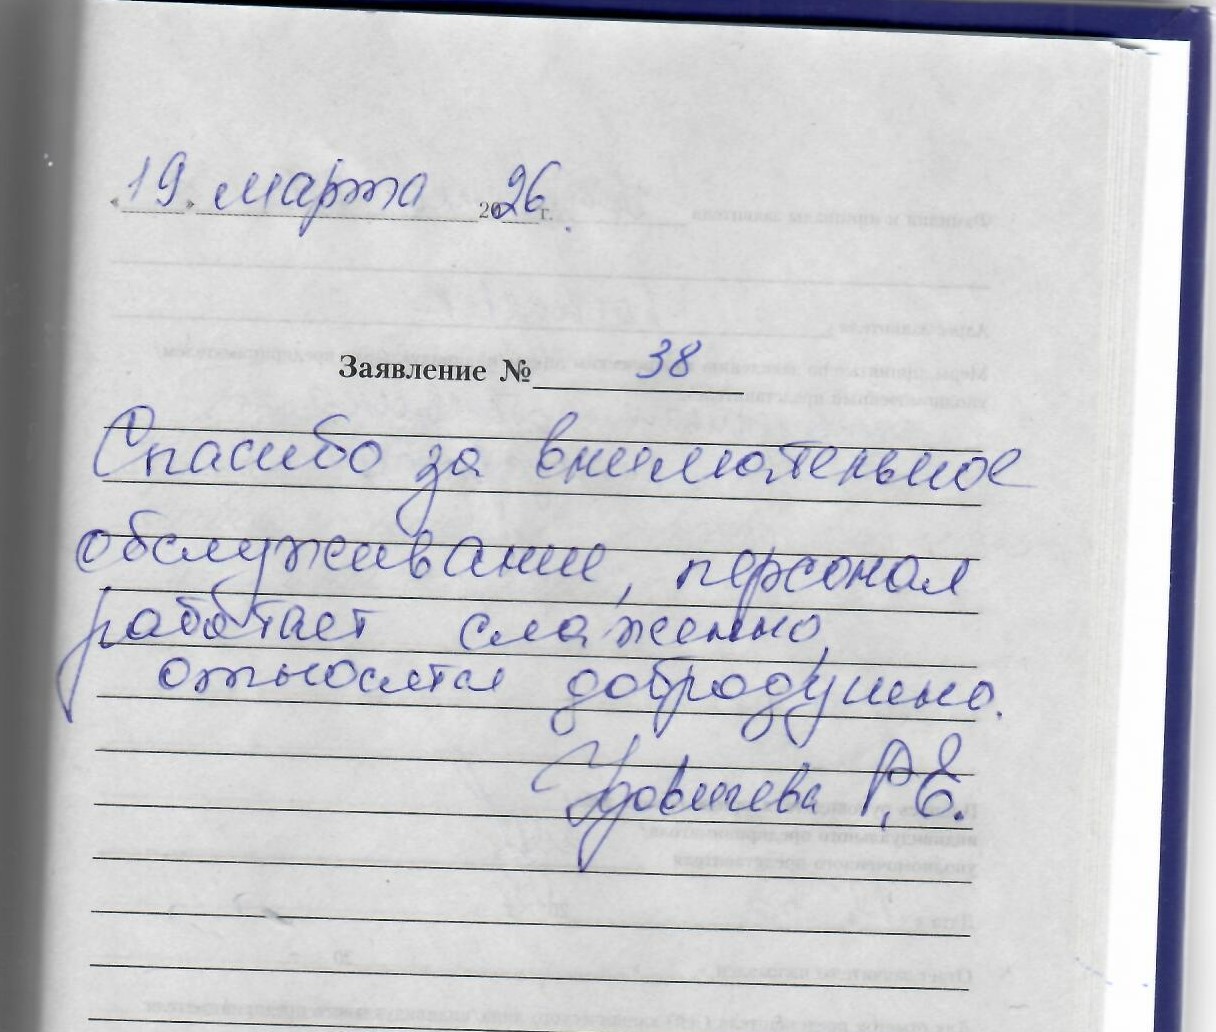 «19» марта 2026 г.
Заявление № 38
Спасибо за внимательное
обслуживание, персонал
работает слаженно,
относятся добродушно.
Удовичева Р.Е.